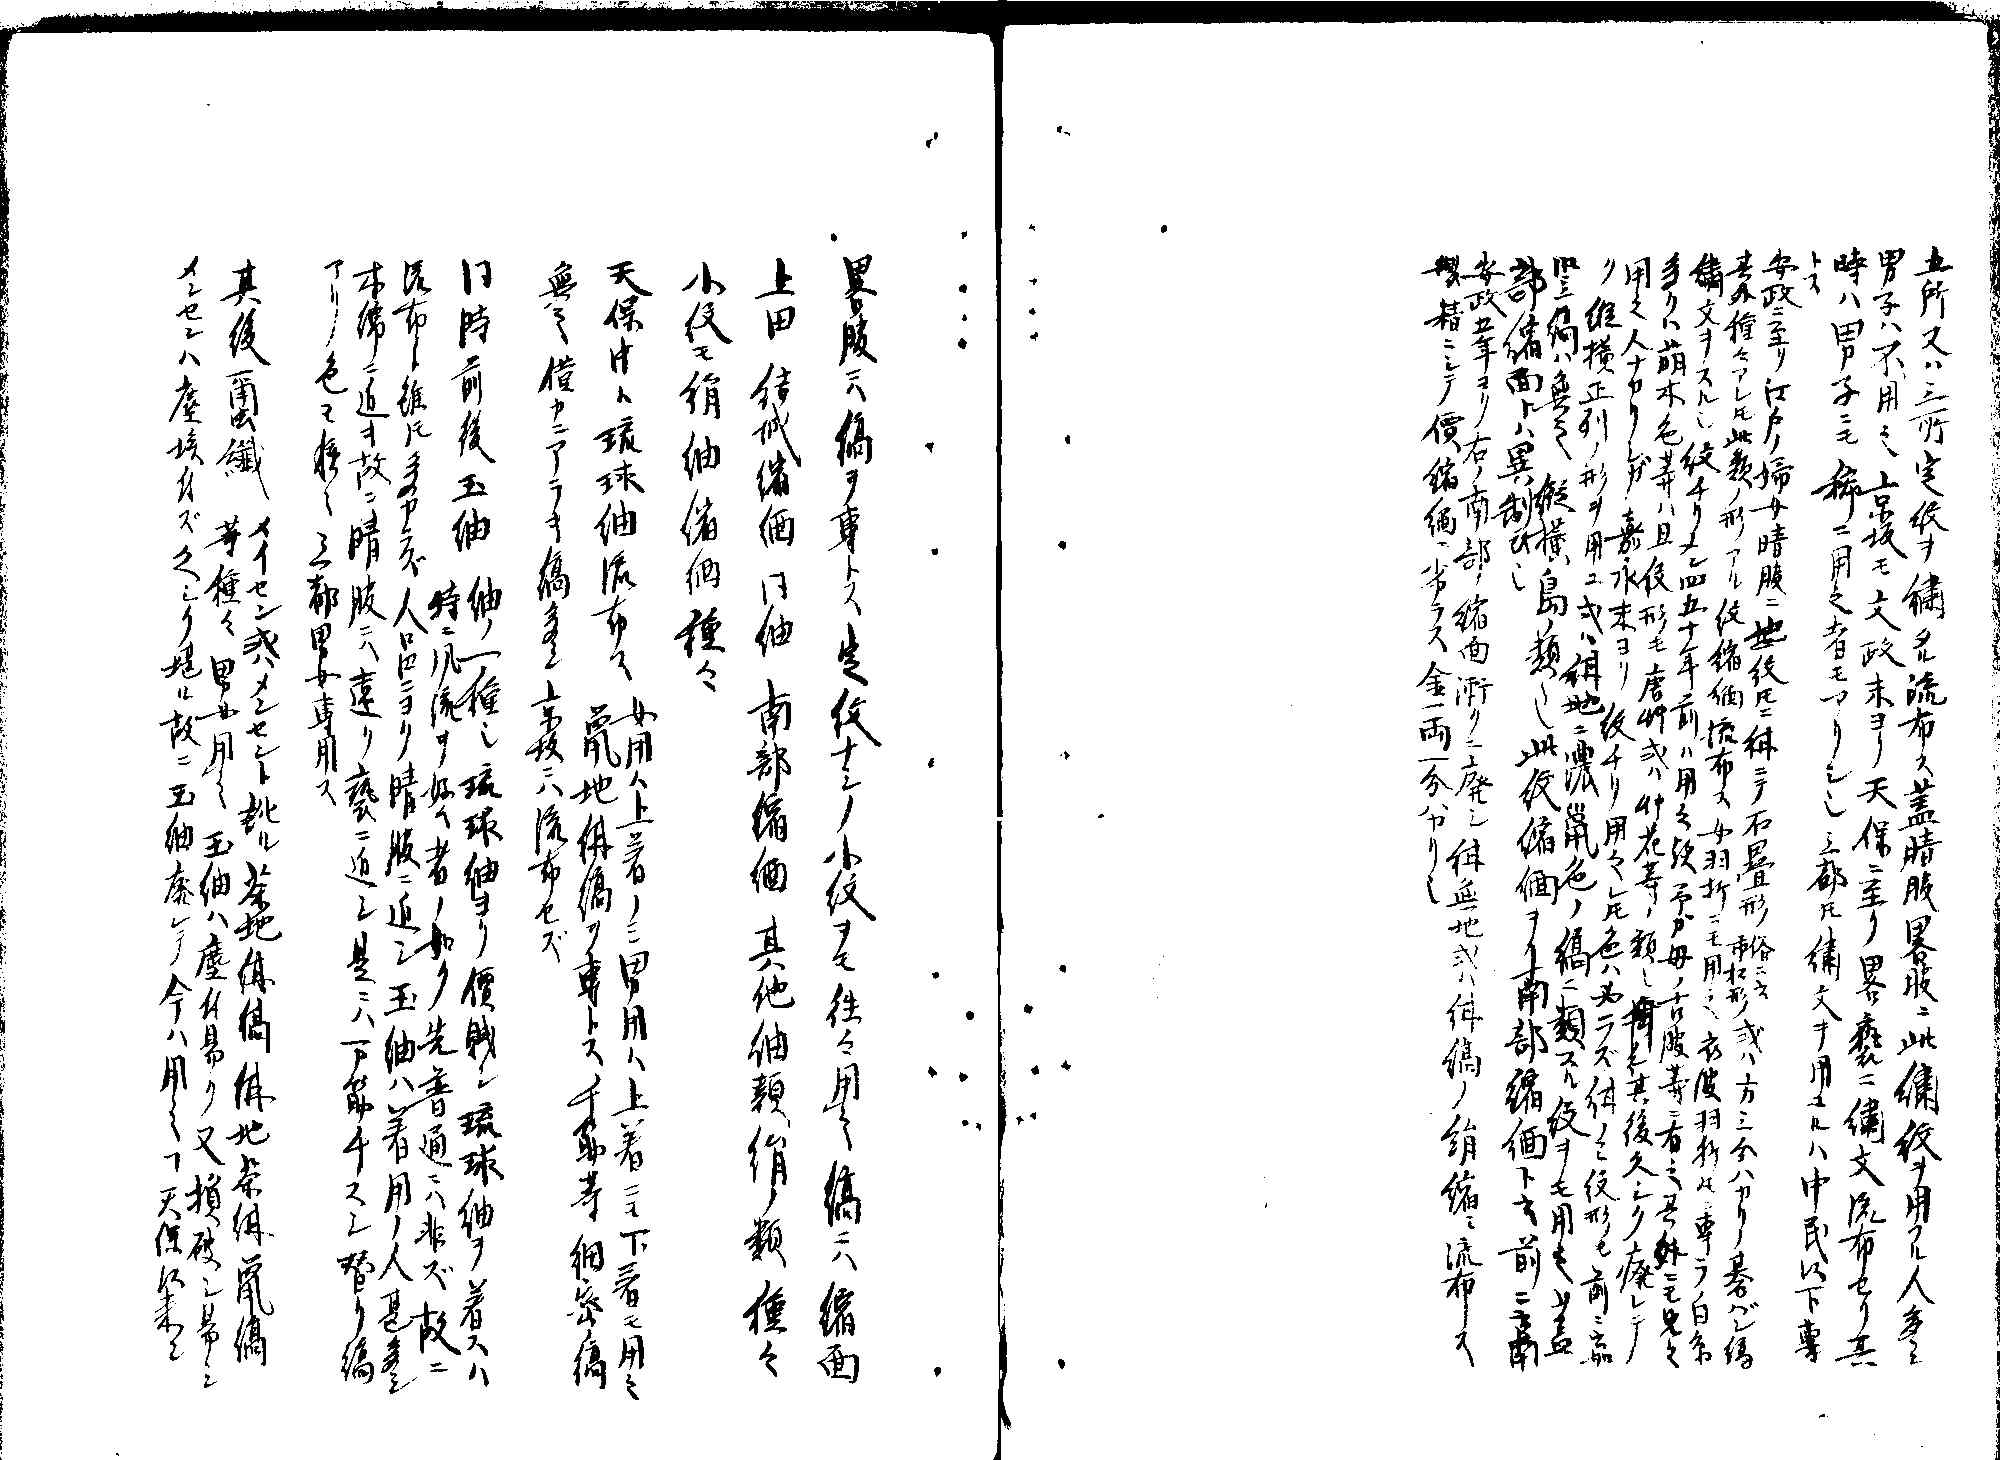 五所又ハ三所定紋ヲ繍タル流布ス蓋晴服畧服ニ此繍紋ヲ用フル人多シ
男子ハ不用之京坂モ文政末ヨリ天保ニ至リ畧褻ニ繍文流布セリ其
時ハ男子ニモ稀ニ用之者モアリシ也三都トモ繍文ヲ用フルハ中民以下専
トス
安政ニ至リ江戸ノ婦女晴服ニ地紋トモニ絣ニテ石畳形俗ニ云市松形或ハ方三分バカリノ碁バン縞
其外種々アレトモ此類ノ形アル紋縮緬流布ス女羽折ニモ用之衣服羽折トモ専ラ白糸
繍文ヲスル也紋チリメン四五十年前ハ用之歟予ガ母ノ古服等ニ有之其外ニモ見之
多クハ萠木色等ハ且紋形モ唐艸或ハ艸花等ノ類也其後久シク廃レテ
用之人ナカリシガ嘉永末ヨリ紋チリ用之レトモ色ハ必ラズ絣也紋形モ前ニ云如
ク縦横正列ノ形ヲ用ユ或ハ絹地ニ濃鼠色ノ縞ニ類スル紋ヲモ用也蓋
竪縞ハ無之縦横島ノ類也此紋縮緬ヲ南部縮緬ト云前ニ云南
部縮面トハ異制也
安政五年ヨリ右ノ南部縮面漸クニ廃シ絣無地或ハ絣縞ノ絹縮ミ流布ス
製精ニシテ價縮緬ニ劣ラス金一両一分バカリ也
畧服ニハ縞ヲ専トス定紋ナシノ小紋ヲモ往々用之縞ニハ縮面
上田　結城縮緬　同紬　南部縮緬　其他紬類絹ノ類種々
小紋モ絹紬縮緬種々
天保中ハ琉球紬流布ス　女用ハ上着ノミ男用ハ上着ニモ下着モ用之
鼠地絣縞ヲ専トス千筋等細密縞
無之僅カニアラキ縞多シ京坂ニハ流布セズ
同時前後玉紬　紬ノ一種也琉球紬ヨリ價賎シ琉球紬ヲ着スハ
特ニ風流ヲ好ム者ノ如ク先普通ニハ非ズ故ニ
流布ト雖トモ多カラズ人品ニヨリ晴服ニ近シ玉紬ハ着用ノ人甚多シ
木綿ニ近キ故ニ晴服ニハ遠ク褻ニ近シ是ニハ万筋千スジ替リ縞
アリ色モ種々三都男女専用ス
其後爾繊　メイセン或ハメンセント訛ル茶地絣縞絣地茶絣鼠縞
等種々男女用之玉紬ハ塵付易ク又損破シ易シ
メンセンハ塵埃付ズ久シク堪ル故ニ玉紬廃レテ今ハ用之ヿ天保以来ノ